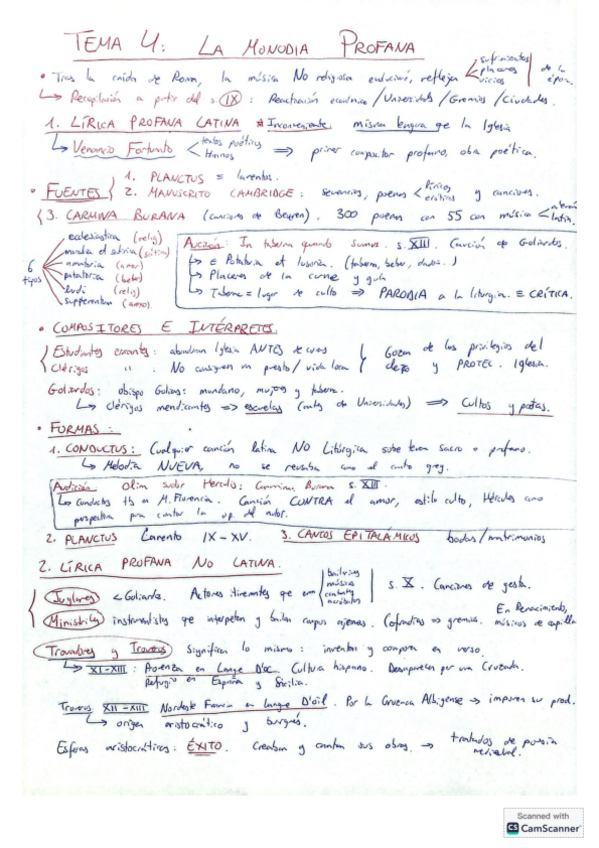 TEMA 4: LA MONODIA PROFANA
• Tras la caída de Roma, la música NO religiosa evolucionó, reflejan < sufrimientos placeres vicios | de la época.
↳ Recopilación a partir del s. IX: Reactivación económica / Universidades / Gremios / Ciudades.
1. LÍRICA PROFANA LATINA * Inconveniente: misma lengua que la Iglesia
↳ Venancio Fortunato < textos poéticos himnos ⇒ primer compositor profano, obra poética.
• FUENTES
1. PLANCTUS = lamentos.
2. MANUSCRITO CAMBRIDGE: secuencias, poemas < líricos eróticos y canciones.
3. CARMINA BURANA (canciones de Beuren). 300 poemas con 55 con música < alemán latín.
6 tipos
ecclesiastica (relig)
moralia et satirica (sátira)
amatoria (amor)
potatoria (beber)
ludi (relig)
supplementum
Audición: In taberna quando sumus. s. XIII. Canción de Goliardos.
↳ ∈ Potatoria et lusoria. (taberna, beber, dados..)
↳ Placeres de la carne y gula
↳ Taberna = lugar de culto ⇒ PARODIA a la liturgia. ≡ CRÍTICA.
• COMPOSITORES E INTÉRPRETES
Estudiantes errantes: abandonan Iglesia ANTES de curas
Clérigos " : NO consiguen un puesto / vida loca
Gozan de los privilegios del clero y PROTEC. Iglesia.
Goliardos: obispo Golias: mundano, mujeres y taberna.
↳ Clérigos mendicantes ⇒ escuelas (antes de Universidades) ⇒ Cultos y poetas.
• FORMAS:
1. CONDUCTUS: Cualquier canción latina NO Litúrgica sobre tema sacro o profano.
↳ Melodía NUEVA, no se reusaba como el canto greg.
Audición Olim sudor Herculis: Carmina Burana s. XIII
↳ Conductus tb en M. Florencia. Canción CONTRA el amor, estilo culto, Hércules como
perspectiva para contar la op. del autor.
2. PLANCTUS Lamento IX - XV. 3. CANTOS EPITALÁMICOS bodas/matrimonios
2. LÍRICA PROFANA NO LATINA.
Juglares < Goliardos. Actores itinerantes que eran | bailarines músicos cantantes | s. X. Canciones de gesta.
Ministriles instrumentistas que interpretan y bailan ajenos. Cofradías ⇒ gremios. En Renacimiento, músicos de capilla
Trovadores y Troveros Significan lo mismo: inventar y componer en verso.
↳ XI-XIII: Provenza en Langue D'oc. Cultura hispano. Desaparecen por una Cruzada.
Refugio en España y Sicilia.
Troveros XII - XIII Nordeste Francia en Langue D'oïl. Por la Cruzada Albigense → imponen su prod.
↳ origen aristocrático y burgués.
Esferas aristocráticas: ÉXITO. Creaban y cantaban sus obras. → tratados de poesía medieval.
Scanned with
CS CamScanner